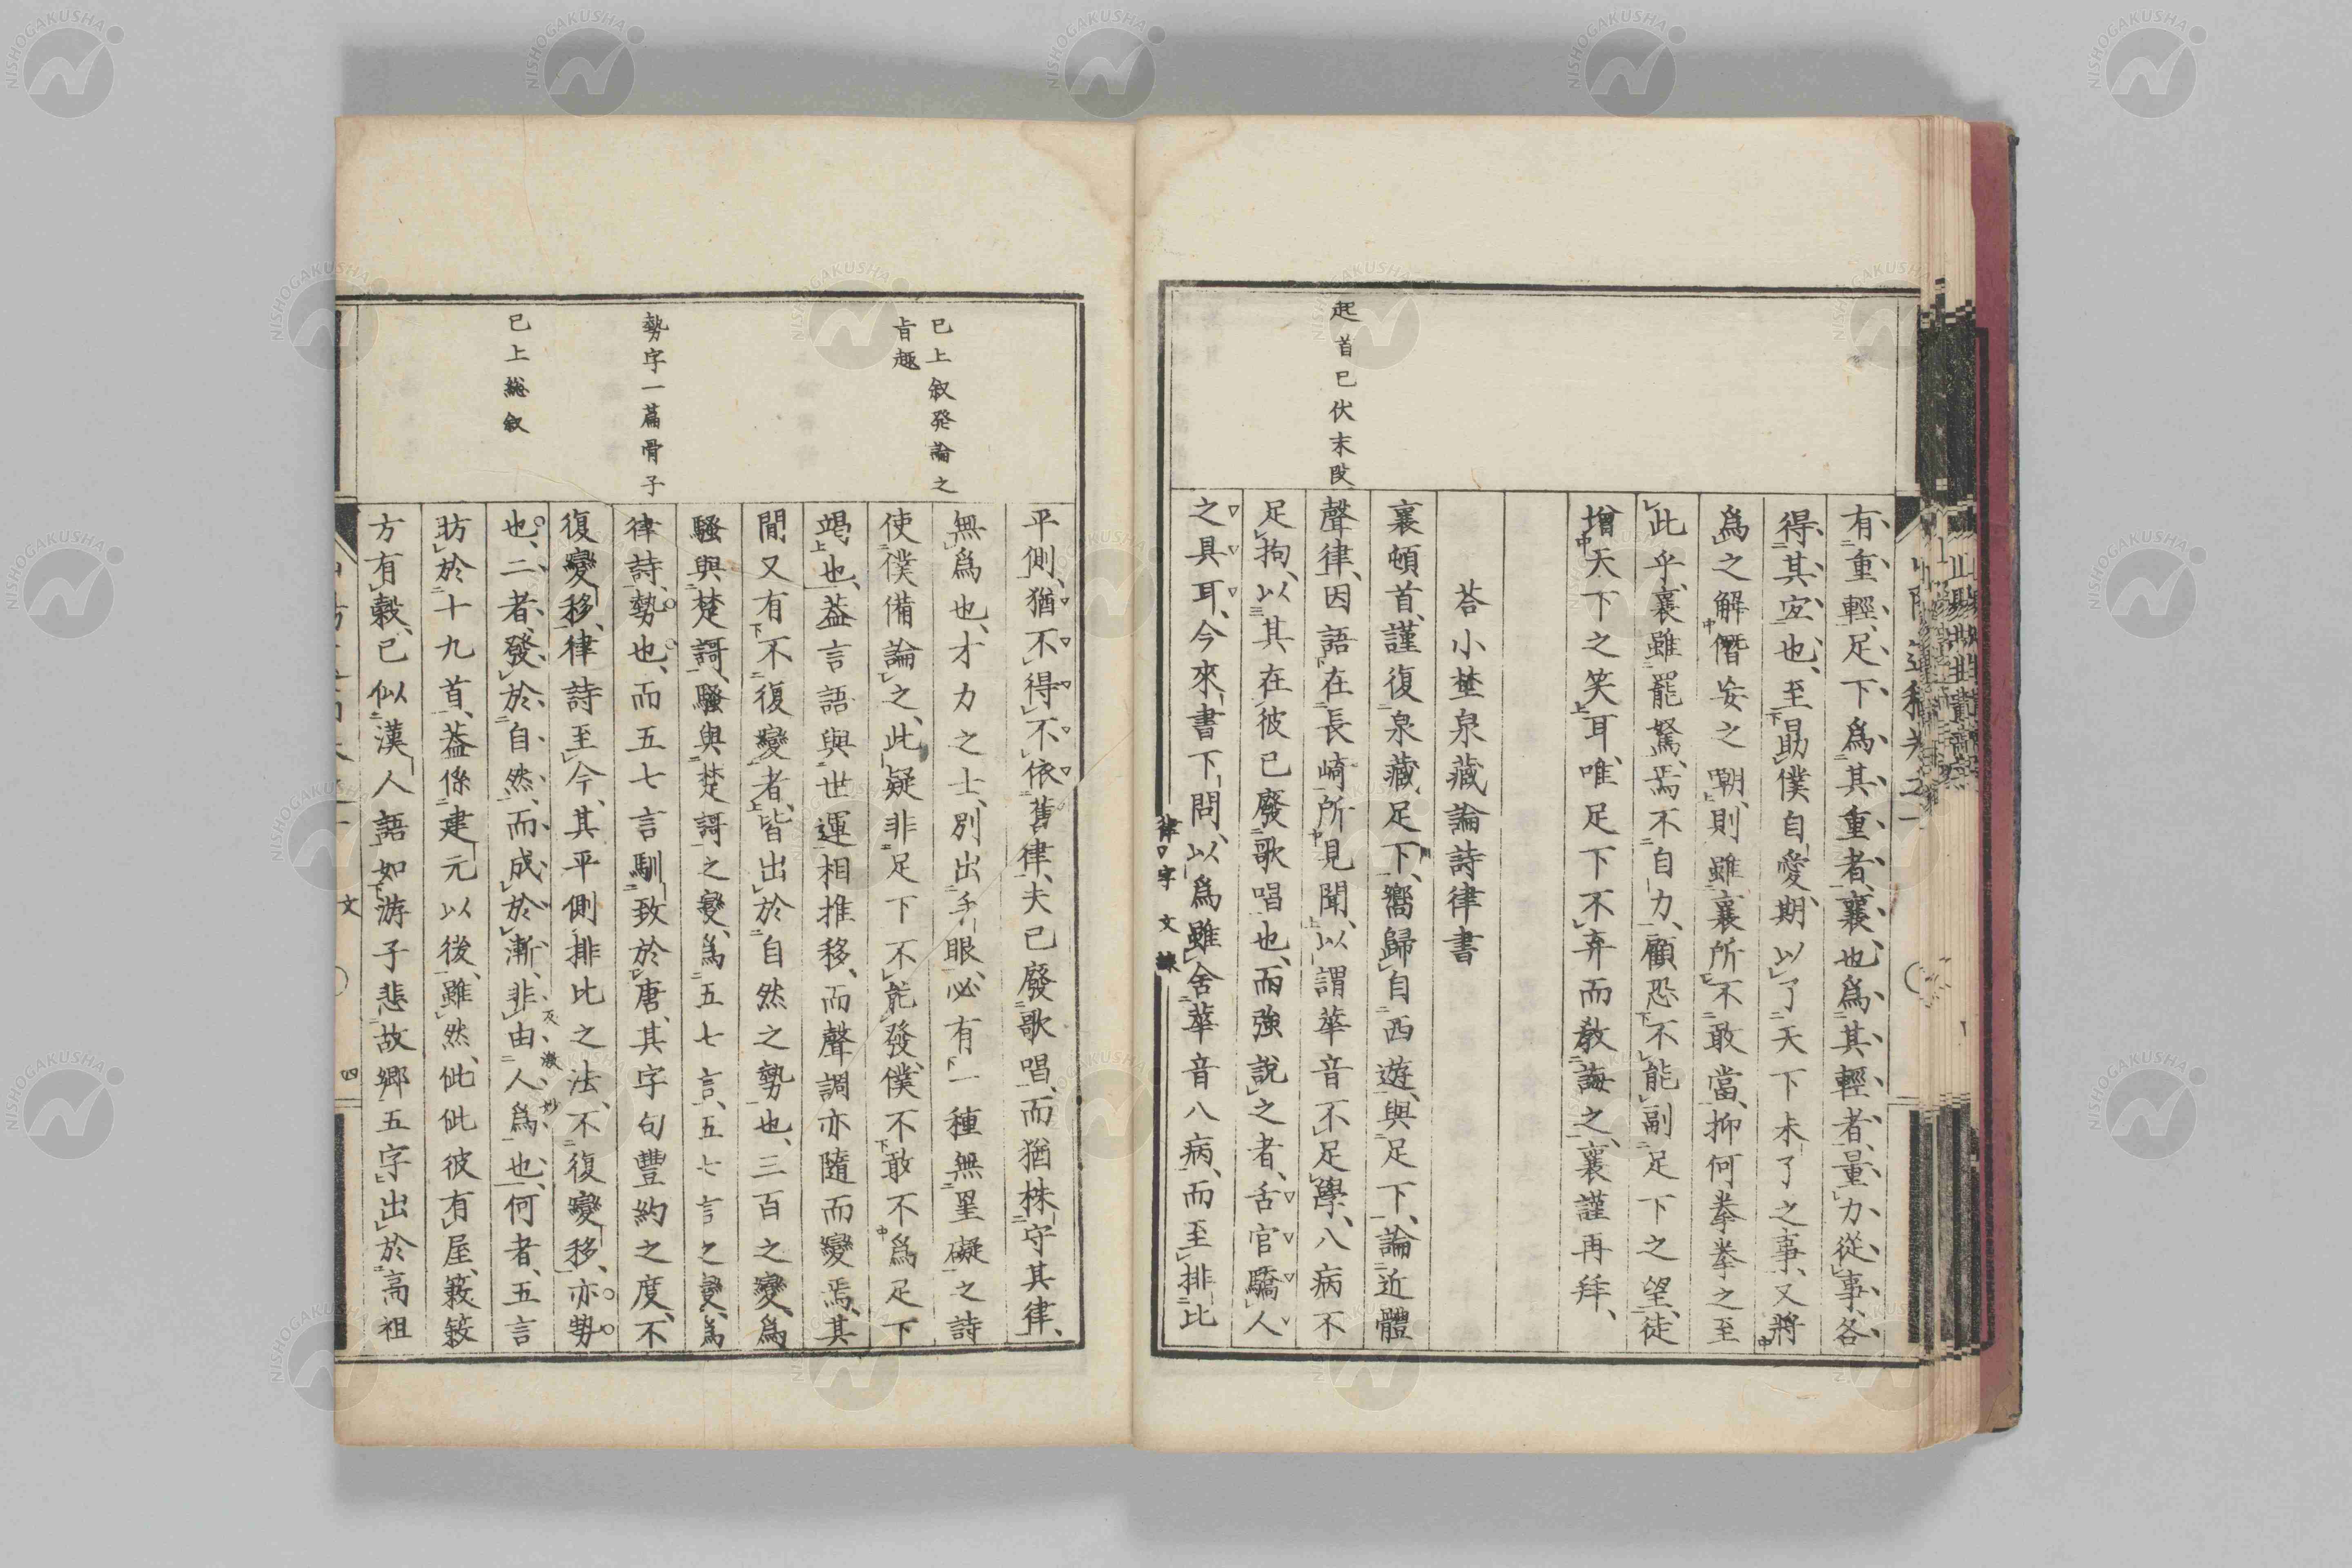 有重輕、足下爲其重者、襄也爲其輕者、量力從事、各
得其宜也、至勗僕自愛、期以了天下未了之事、又將
爲之解僭妄之嘲、則雖襄所不敢當、抑何拳拳之至
此乎、襄雖罷駑、焉不自力、顧恐不能副足下之望、徒
增天下之笑耳、唯足下不弃而教誨之、襄謹再拜、
荅小埜泉藏論詩律書
起首已伏末段
襄頓首、謹復泉藏足下、嚮歸自西遊、與足下、論近體
聲律、因語在長崎所見聞、以謂華音不足學、八病不
足拘、以其在彼已廢歌唱也、而強說之者、舌官驕人
之具耳、今來書下問、以爲雖舍華音八病、而至排比
平側、猶不得不依舊律、夫已廢歌唱、而猶株守其律、
已上叙発論之
旨趣
無爲也、才力之士、別出手眼、必有一種無罣礙之詩
使僕備論之、此疑非足下不能發、僕不敢不爲足下
竭也、葢言語與世運相推移、而聲調亦隨而變焉、其
間又有不復變者、皆出於自然之勢也、三百之變、爲
騷與楚謌、騷與楚謌之變、爲五七言、五七言之變、爲
勢字一篇骨子
律詩、勢也、而五七言馴致於唐、其字句豐約之度、不
復變移、律詩至今、其平側排比之法、不復變移、亦勢
已上総叙
也、二者、發於自然、而成於漸、非由人爲也、何者、五言
昉於十九首、葢係建元以後、雖然、佌佌彼有屋、蔌蔌
方有穀、已似漢人語、如游子悲故鄉五字、出於高祖
文
四